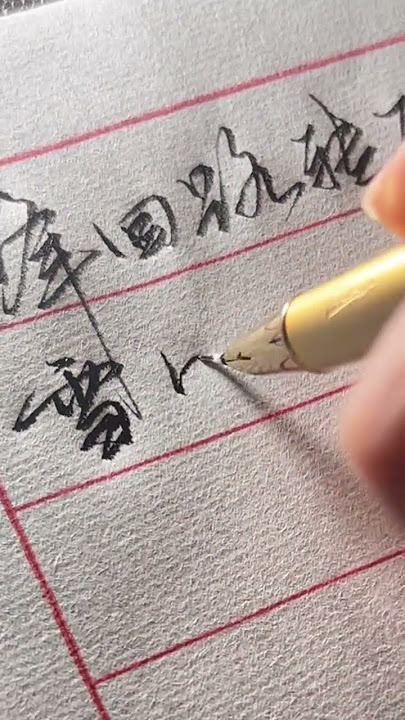 峰回路转
雪